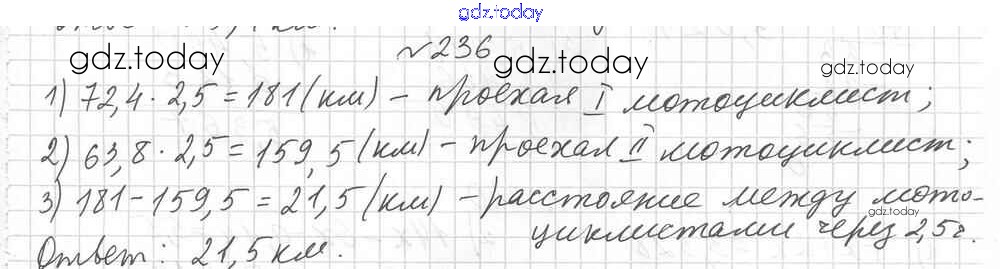 gdz.today
№236
gdz.today gdz.today gdz.today
1) 72,4 · 2,5 = 181 (км) – проехал I мотоциклист;
2) 63,8 · 2,5 = 159,5 (км) – проехал II мотоциклист;
3) 181 – 159,5 = 21,5 (км) – расстояние между мото-
gdz.today
циклистами через 2,5 ч.
Ответ: 21,5 км.